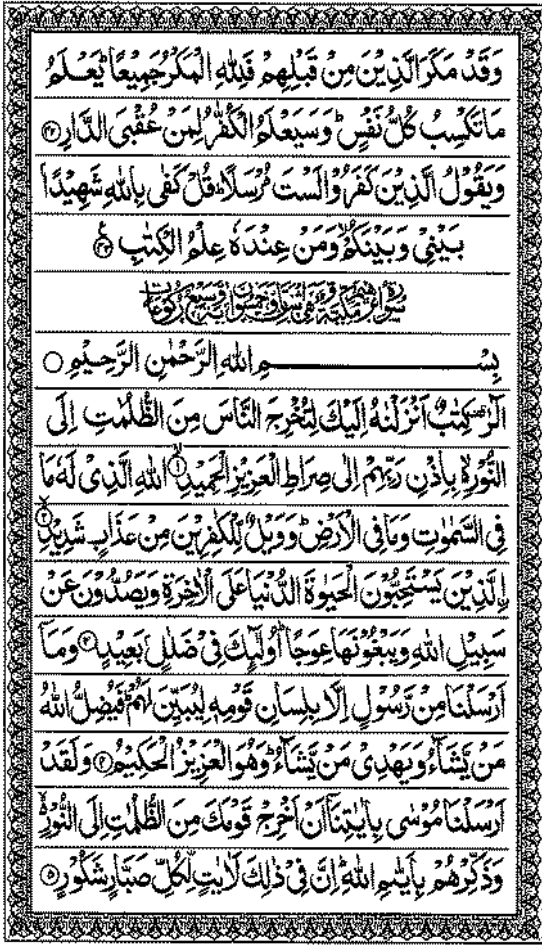 وَقَدْ مَكَرَ الَّذِیْنَ مِنْ قَبْلِهِمْ فَلِلّٰهِ الْمَكْرُ جَمِیْعًاؕ یَعْلَمُ
مَا تَكْسِبُ كُلُّ نَفْسٍؕ وَ سَیَعْلَمُ الْكُفّٰرُ لِمَنْ عُقْبَی الدَّارِ۝۴۲
وَیَقُوْلُ الَّذِیْنَ كَفَرُوْا لَسْتَ مُرْسَلًاؕ قُلْ كَفٰی بِاللّٰهِ شَهِیْدًۢا
بَیْنِیْ وَ بَیْنَكُمْۙ وَ مَنْ عِنْدَهٗ عِلْمُ الْكِتٰبِ۝۴۳ع
سورة ابرهيم مكية وهي اثنتان وخمسون اية وسبع ركوعات
بِسْمِ اللّٰهِ الرَّحْمٰنِ الرَّحِیْمِ۝
الٓرٰ۫ كِتٰبٌ اَنْزَلْنٰهُ اِلَیْكَ لِتُخْرِجَ النَّاسَ مِنَ الظُّلُمٰتِ اِلَی
النُّوْرِ۬ۙ بِاِذْنِ رَبِّهِمْ اِلٰی صِرَاطِ الْعَزِیْزِ الْحَمِیْدِۙ۝۱ اللّٰهِ الَّذِیْ لَهٗ مَا
فِی السَّمٰوٰتِ وَمَا فِی الْاَرْضِؕ وَوَیْلٌ لِّلْكٰفِرِیْنَ مِنْ عَذَابٍ شَدِیْدِۙ۝۲
اِ۟لَّذِیْنَ یَسْتَحِبُّوْنَ الْحَیٰوةَ الدُّنْیَا عَلَی الْاٰخِرَةِ وَیَصُدُّوْنَ عَنْ
سَبِیْلِ اللّٰهِ وَیَبْغُوْنَهَا عِوَجًاؕ اُولٰٓىِٕكَ فِیْ ضَلٰلٍۭ بَعِیْدٍ۝۳ وَمَاۤ
اَرْسَلْنَا مِنْ رَّسُوْلٍ اِلَّا بِلِسَانِ قَوْمِهٖ لِیُبَیِّنَ لَهُمْؕ فَیُضِلُّ اللّٰهُ
مَنْ یَّشَآءُ وَیَهْدِیْ مَنْ یَّشَآءُؕ وَهُوَ الْعَزِیْزُ الْحَكِیْمُ۝۴ وَلَقَدْ
اَرْسَلْنَا مُوْسٰی بِاٰیٰتِنَاۤ اَنْ اَخْرِجْ قَوْمَكَ مِنَ الظُّلُمٰتِ اِلَی النُّوْرِ۬ۙ
وَذَكِّرْهُمْ بِاَیّٰىمِ اللّٰهِؕ اِنَّ فِیْ ذٰلِكَ لَاٰیٰتٍ لِّكُلِّ صَبَّارٍ شَكُوْرٍ۝۵